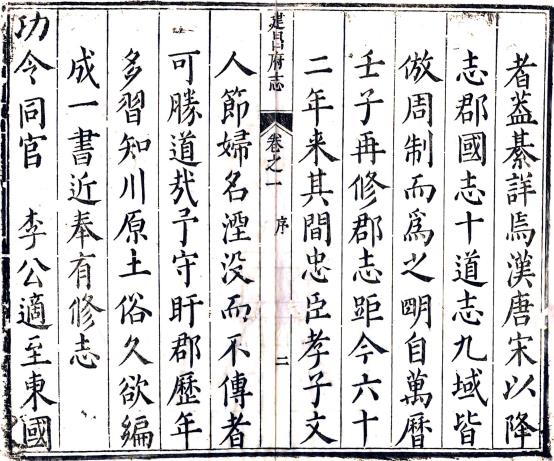 者葢綦詳焉漢唐宋以降
志郡國志十道志九域皆
倣周制而爲之明自萬曆
壬子再修郡志距今六十
二年来其間忠臣孝子文
建昌府志 卷之一 序 二
人節婦名湮没而不傳者
可勝道㦲予守盱郡歷年
多習知川原土俗久欲編
成一書近奉有修志
功令同官 李公適至東國